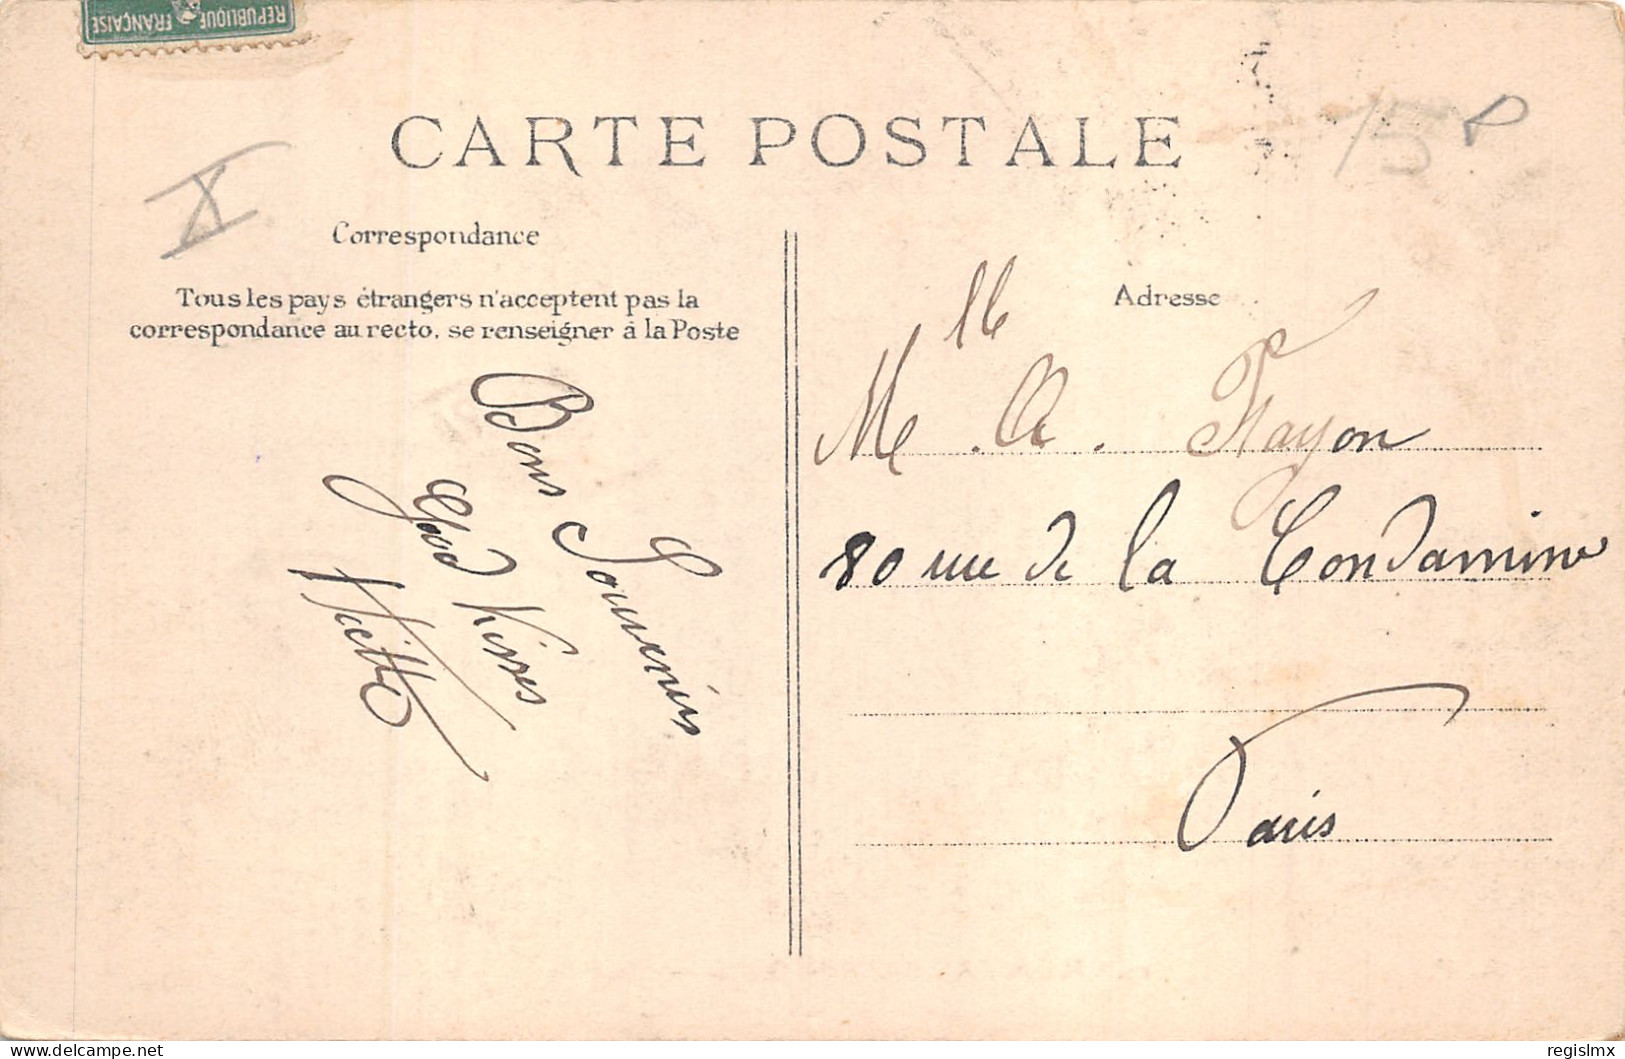 REPUBLIQUE FRANÇAISE
CARTE POSTALE
X
15
Correspondance
Tous les pays étrangers n'acceptent pas la
correspondance au recto, se renseigner à la Poste
Bons Souvenirs
Good Kisses
Adresse
Mlle A. Fayon
80 rue de la Condamine
Paris
regislmx
delcampe.net